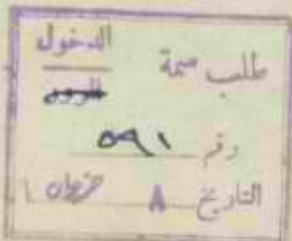 طلب سمة الدخول
المرور
رقم ٥٩١
التاريخ ٨ حزيران